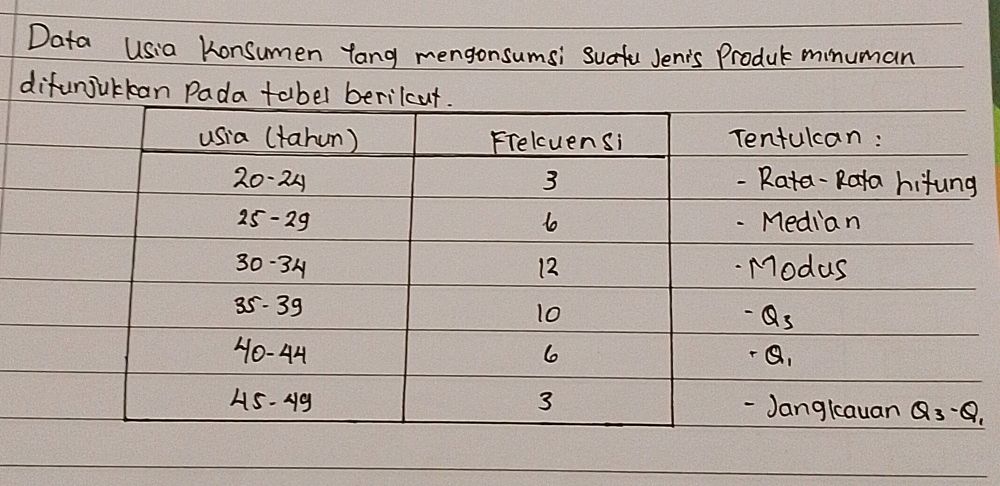 Data usia konsumen yang mengonsumsi suatu jenis produk minuman
ditunjukkan pada tabel berikut.
usia (tahun) Frekuensi Tentukan :
20-24 3 - Rata-Rata hitung
25-29 6 - Median
30-34 12 - Modus
35-39 10 - Q3
40-44 6 - Q1
45-49 3 - Jangkauan Q3-Q1